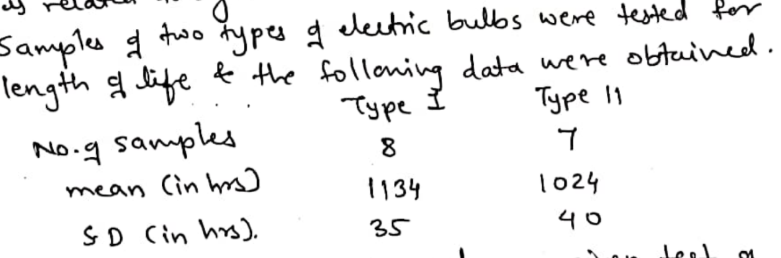 Samples of two types of electric bulbs were tested for
length of life & the following data were obtained.
Type I Type II
No. of samples 8 7
mean (in hrs) 1134 1024
SD (in hrs). 35 40